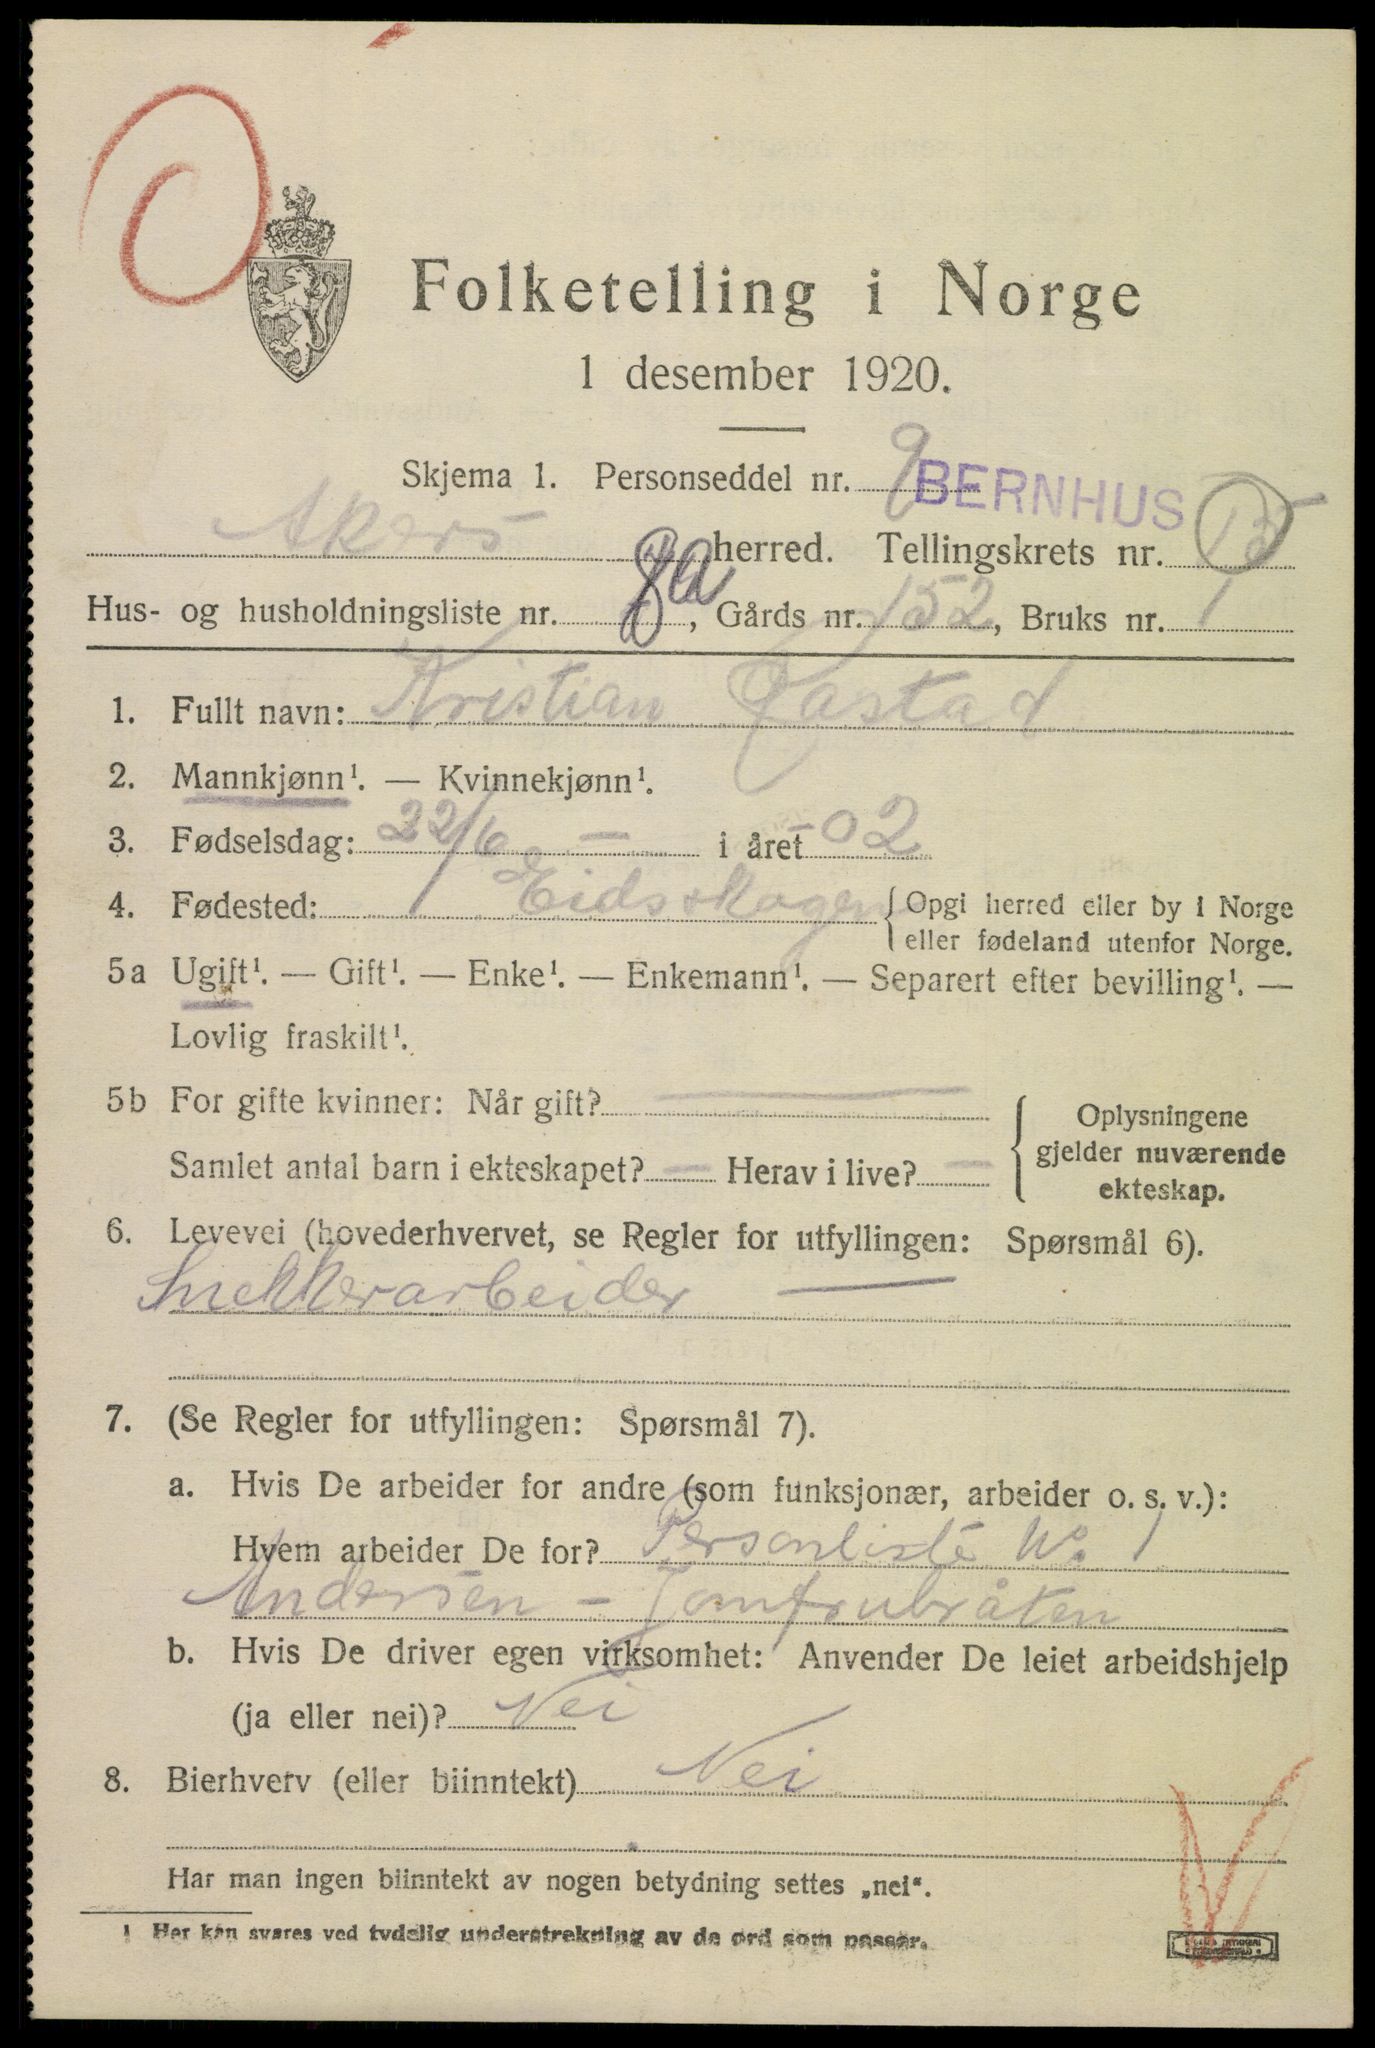 Folketelling i Norge
1 desember 1920.
Skjema 1. Personseddel nr. 9
BERNHUS
Akers herred. Tellingskrets nr. 15
Hus- og husholdningsliste nr. 8a, Gårds nr. 152, Bruks nr. 1
1. Fullt navn: Kristian
2. Mannkjønn¹. — Kvinnekjønn¹.
3. Fødselsdag: 22/6 — i året 02
4. Fødested: Eidsskogen { Opgi herred eller by i Norge
eller fødeland utenfor Norge.
5a Ugift¹. — Gift¹. — Enke¹. — Enkemann¹. — Separert efter bevilling¹. —
Lovlig fraskilt¹.
5b For gifte kvinner: Når gift? —
Samlet antal barn i ekteskapet? — Herav i live? —
{ Oplysningene
gjelder nuværende
ekteskap.
6. Levevei (hovederhvervet, se Regler for utfyllingen: Spørsmål 6).
Snekkerarbeider —
7. (Se Regler for utfyllingen: Spørsmål 7).
a. Hvis De arbeider for andre (som funksjonær, arbeider o. s. v.):
Hvem arbeider De for? Personliste No. 1
Andersen - Jomfrubråten
b. Hvis De driver egen virksomhet: Anvender De leiet arbeidshjelp
(ja eller nei)? Nei
8. Bierhverv (eller biinntekt) Nei
Har man ingen biinntekt av nogen betydning settes „nei“.
1 Her kan svares ved tydelig understrekning av de ord som passer.